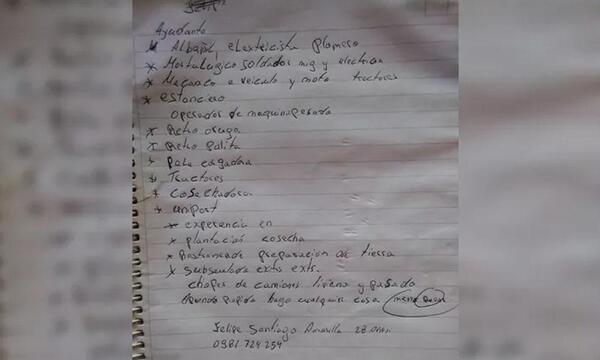 Ayudante
* Albañil, electricista plomero
* Metalurgico soldador mig y electrica
* Mecanico e veiculo y moto tractores
* estanciero
operador de maquina pesada
* Retro oruga
* Retro palita
* Pala cargadora
* Tractores
* Cosechadora
* uniport
* experiencia en
* plantación cosecha
* Rastroneada preparacion de tierra
* Subsoladora exts exts.
chofer de camiones liviano y pesado
hago cualquier cosa
Felipe Santiago Amarilla 28 años
0981 724 254